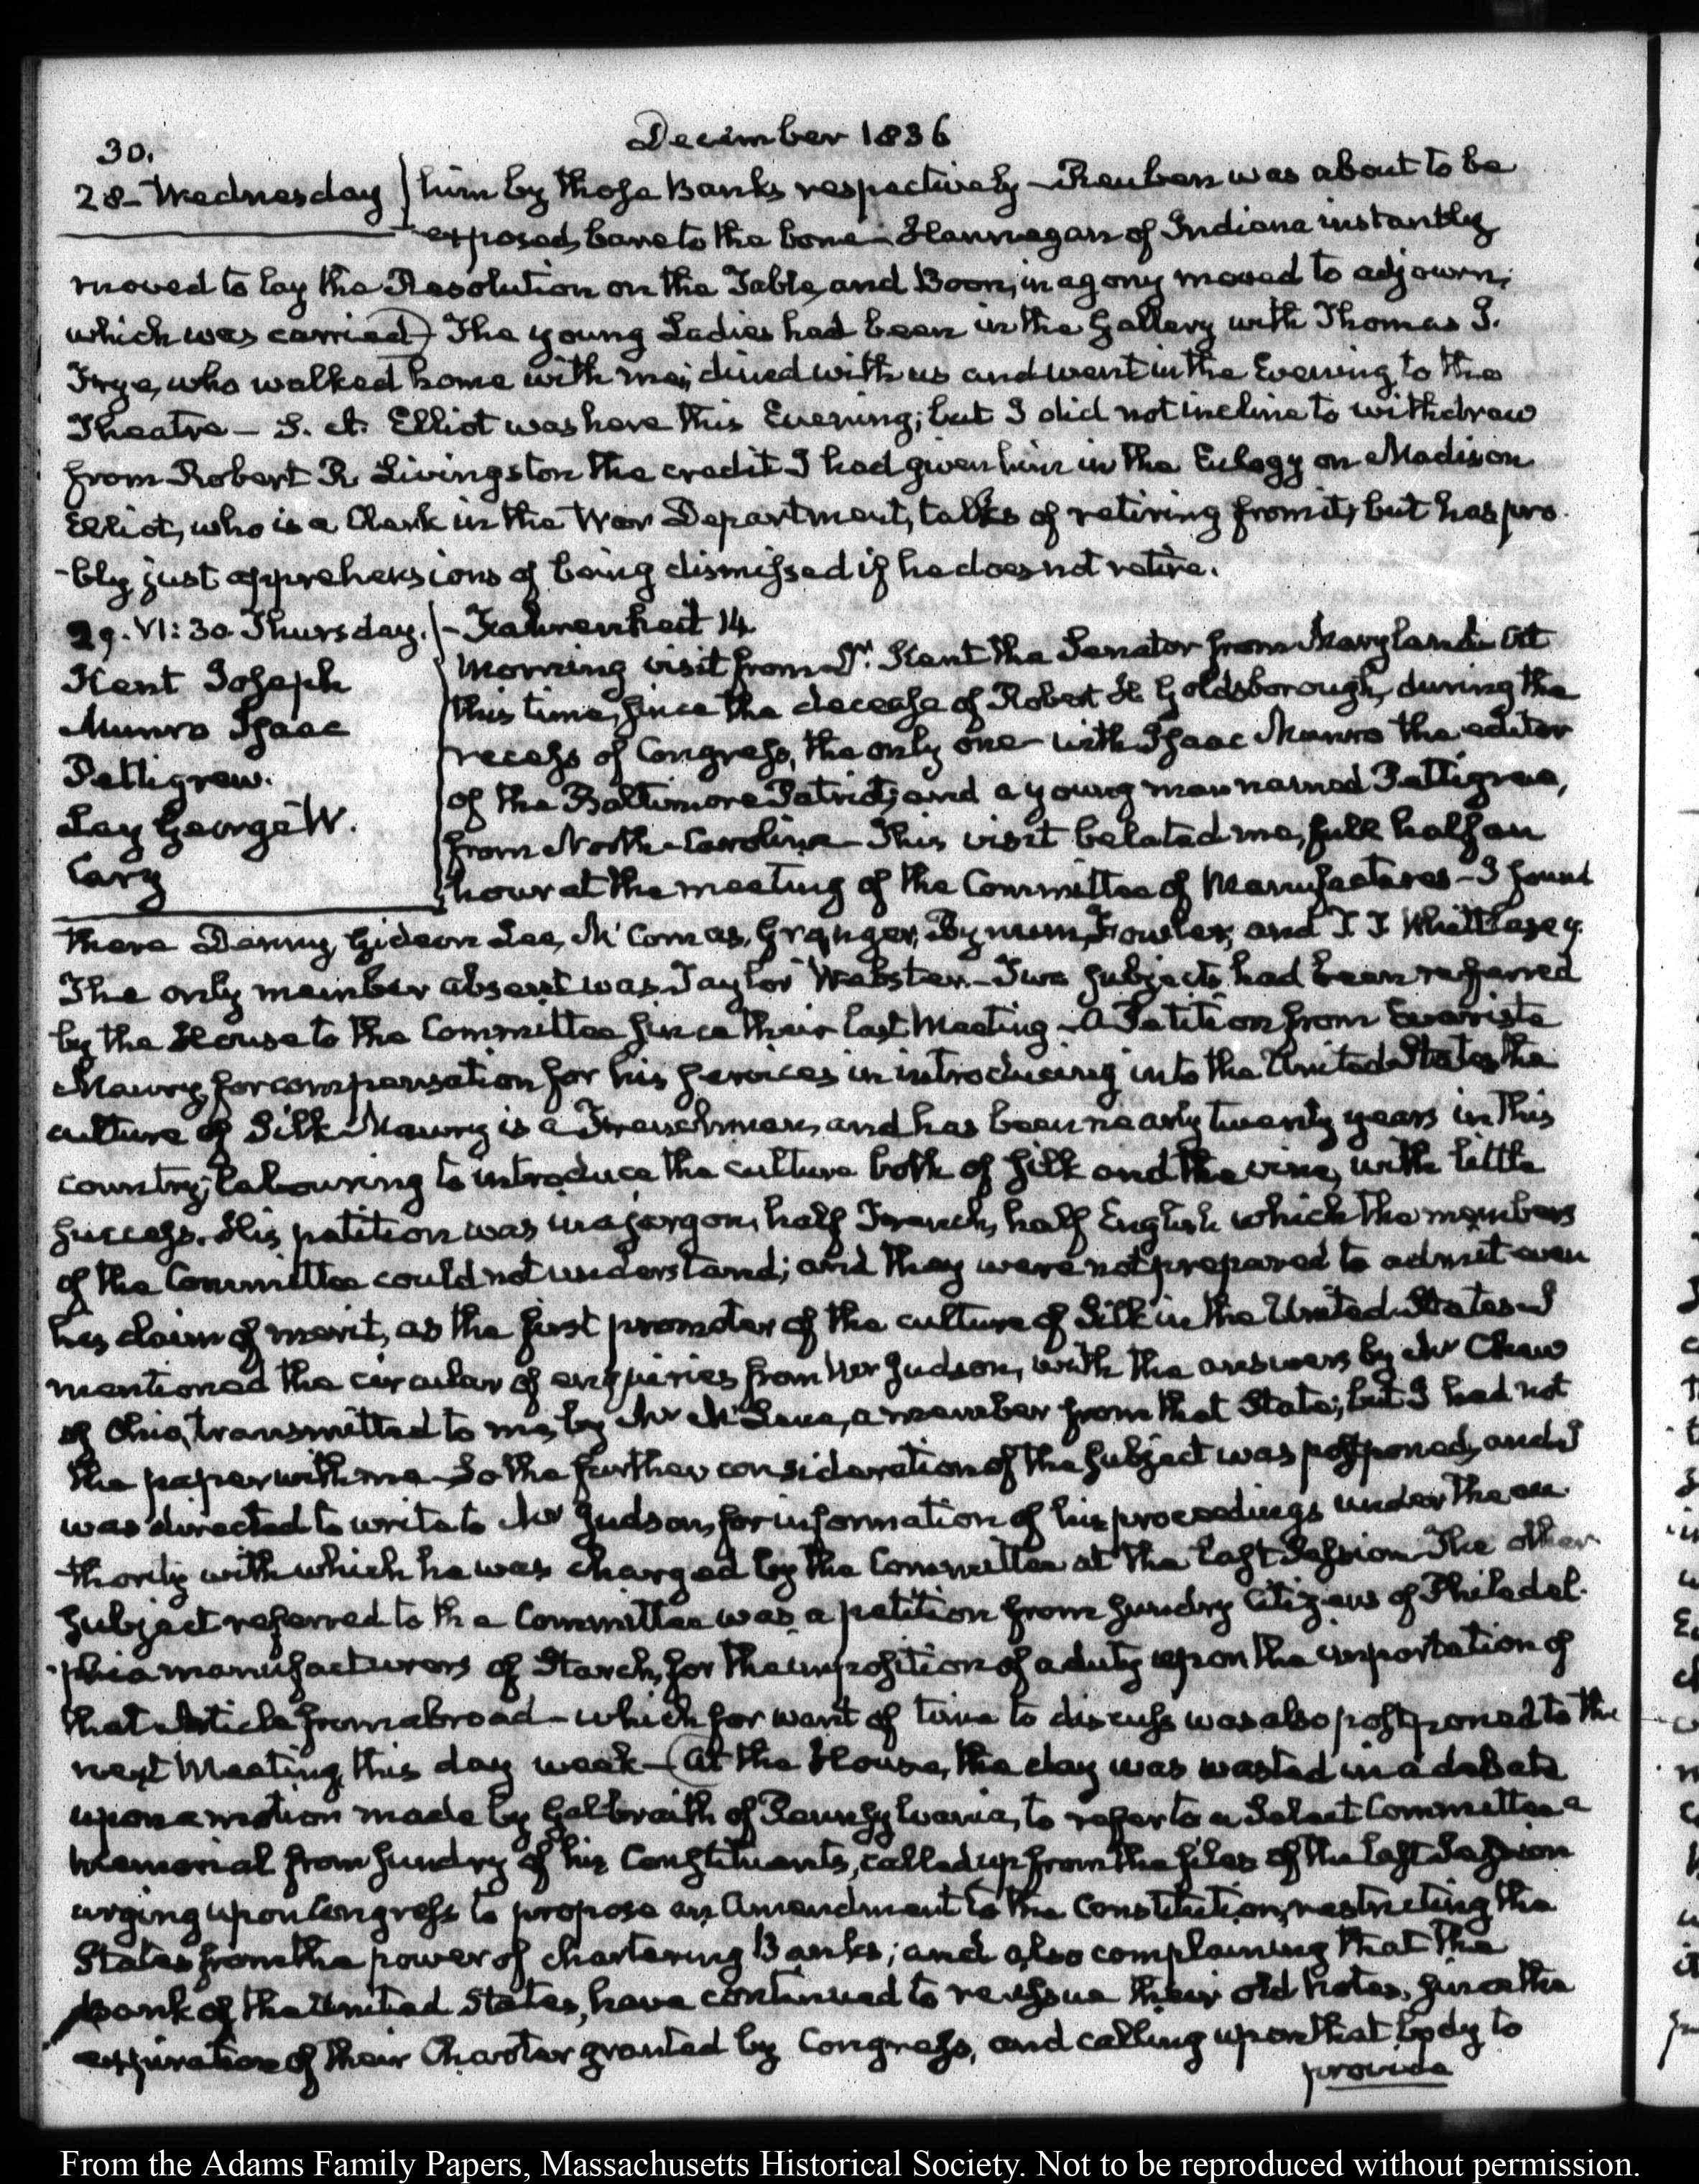 30.
December 1836
28- Wednesday
him by those Banks respectively - Reuben was about to be
exposed, bare to the bone - Hannegan of Indiana instantly
moved to lay the Resolution on the Table, and Boon, in agony moved to adjourn,
which was carried) The young Ladies had been in the Gallery with Thomas J.
Frye, who walked home with me, dined with us and went in the Evening to the
Theatre - J. A. Elliot was here this Evening; but I did not incline to withdraw
from Robert R Livingston the credit I had given him in the Eulogy on Madison
Elliot, who is a Clerk in the War Department, talks of retiring from it, but has pro-
-bly just apprehensions of being dismissed if he does not retire.
29. VI:30. Thursday.
Kent Joseph
Munro Isaac
Pettigrew.
Lay George W.
Cary
- Fahrenheit 14
Morning visit from Dr. Kent the Senator from Maryland - At
this time, since the decease of Robert H Goldsborough, during the
recess of Congress, the only one - with Isaac Munro the editor
of the Baltimore Patriot; and a young man named Pettigrew,
from North-Carolina - This visit belated me, full half an
hour at the meeting of the Committee of Manufactures - I found
there Denny, Gideon Lee, McComas, Granger, Bynum, Fowler, and T T Whittlesey.
The only member absent was Taylor Webster - Two subjects had been referred
by the House to the Committee since their last Meeting - A Petition from Evariste
Maury, for compensation for his services in introducing into the United States the
culture of Silk - Maury is a Frenchman, and has been nearly twenty years in this
country, labouring to introduce the culture both of silk and the vine, with little
success. His petition was in a jargon, half French, half English which the members
of the Committee could not understand; and they were not prepared to admit even
his claim of merit, as the first promoter of the culture of Silk in the United States - I
mentioned the circular of enquiries from Mr Judson, with the answers by Mr Chew
of Ohio, transmitted to me, by Mr McLene, a member from that State; but I had not
the paper with me - So the further consideration of the subject was postponed, and I
was directed to write to Mr Judson, for information of his proceedings under the au
thority with which he was charged by the Committee at the last Session - The other
subject referred to the Committee was a petition from sundry Citizens of Philadel-
-phia manufacturers of Starch, for the imposition of a duty upon the importation of
that Article from abroad - which for want of time to discuss was also postponed to the
next Meeting, this day week - (At the House, the day was wasted in a debate
upon a motion made by Galbraith of Pennsylvania, to refer to a Select Committee a
Memorial from sundry of his Constituents, called up from the files of the last Session
urging upon Congress to propose an Amendment to the Constitution, restricting the
States from the power of chartering Banks; and also complaining that the
Bank of the United States, have continued to reissue their old notes, since the
expiration of their Charter granted by Congress, and calling upon that body to
provide
From the Adams Family Papers, Massachusetts Historical Society. Not to be reproduced without permission.